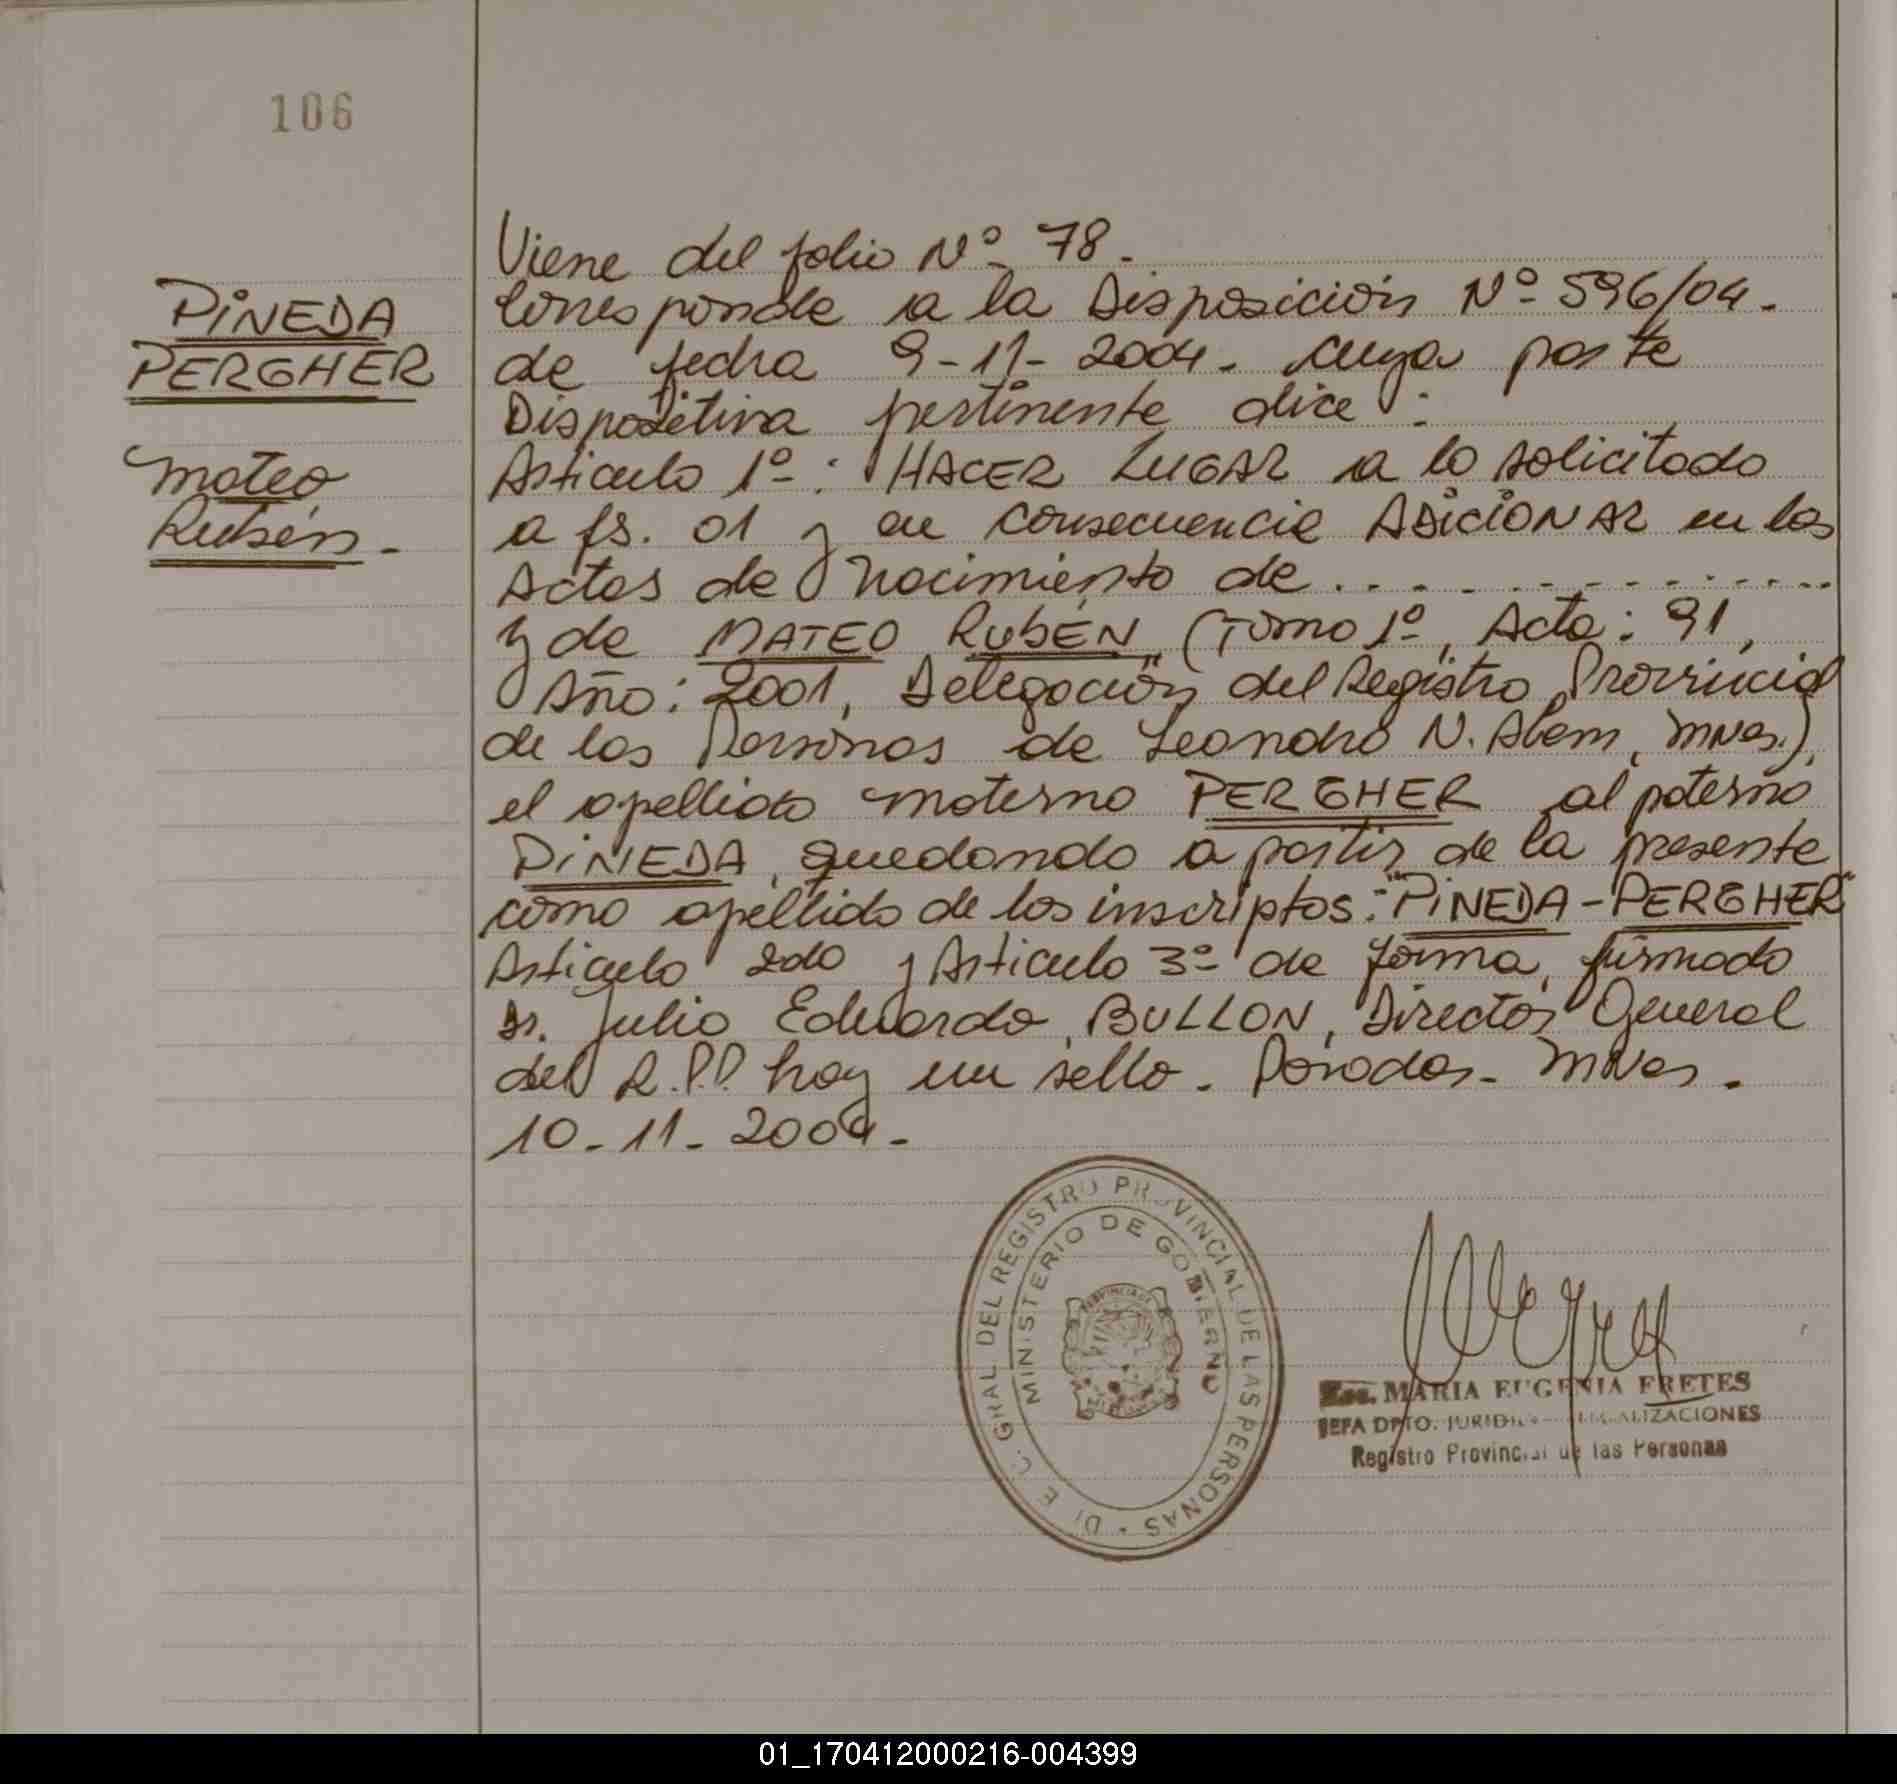 106
PINEDA
PERGHER
Mateo
Rubén.-
Viene del folio Nº 78.
Corresponde a la Disposición Nº 596/04.
de fecha 9-11-2004. cuya parte
Dispositiva pertinente dice:
Articulo 1º: HACER LUGAR a lo solicitado
a fs. 01 y en consecuencia ADICIONAR en las
Actas de Nacimiento de. . . - - - - - - - - . . .
y de MATEO RUBÉN (Tomo 1º, Acta: 91,
Año: 2001, Delegación del Registro Provincial
de las Personas de Leandro N. Alem, Mnes.),
el apellido materno PERGHER al paterno
PINEDA, quedando a partir de la presente
como apellido de los inscriptos: "PINEDA-PERGHER"
Articulo 2do y Articulo 3º de forma, firmado
Dr. Julio Eduardo BULLON, Director General
del R.P.P. hay un sello. Posadas- Mnes.
10-11-2004.-
GRAL. DEL REGISTRO PROVINCIAL DE LAS PERSONAS
MINISTERIO DE GOBIERNO
MARIA EUGENIA FRETES
JEFA DPTO. LEGALIZACIONES
Registro Provincial de las Personas
01_170412000216-004399